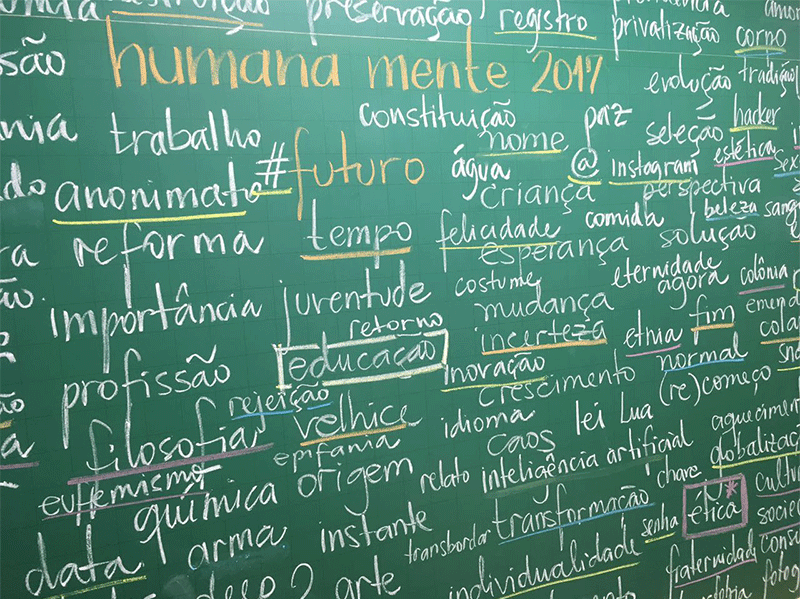 preservação registro privatização corpo
humana mente 2017 evolução tradição
trabalho constituição nome paz seleção hacker
anonimato #futuro água @ instagram estética
criança perspectiva
reforma tempo felicidade comida beleza
esperança solução
importância juventude costume eternidade colônia
mudança agora
retorno incerteza etnia fim
profissão educação inovação normal
rejeição crescimento (re)começo
filosofia velhice idioma lei lua
epifania caos
eufemismo química origem relato inteligência artificial
chave
data arma instante transbordar transformação senha ética*
arte individualidade fraternidade